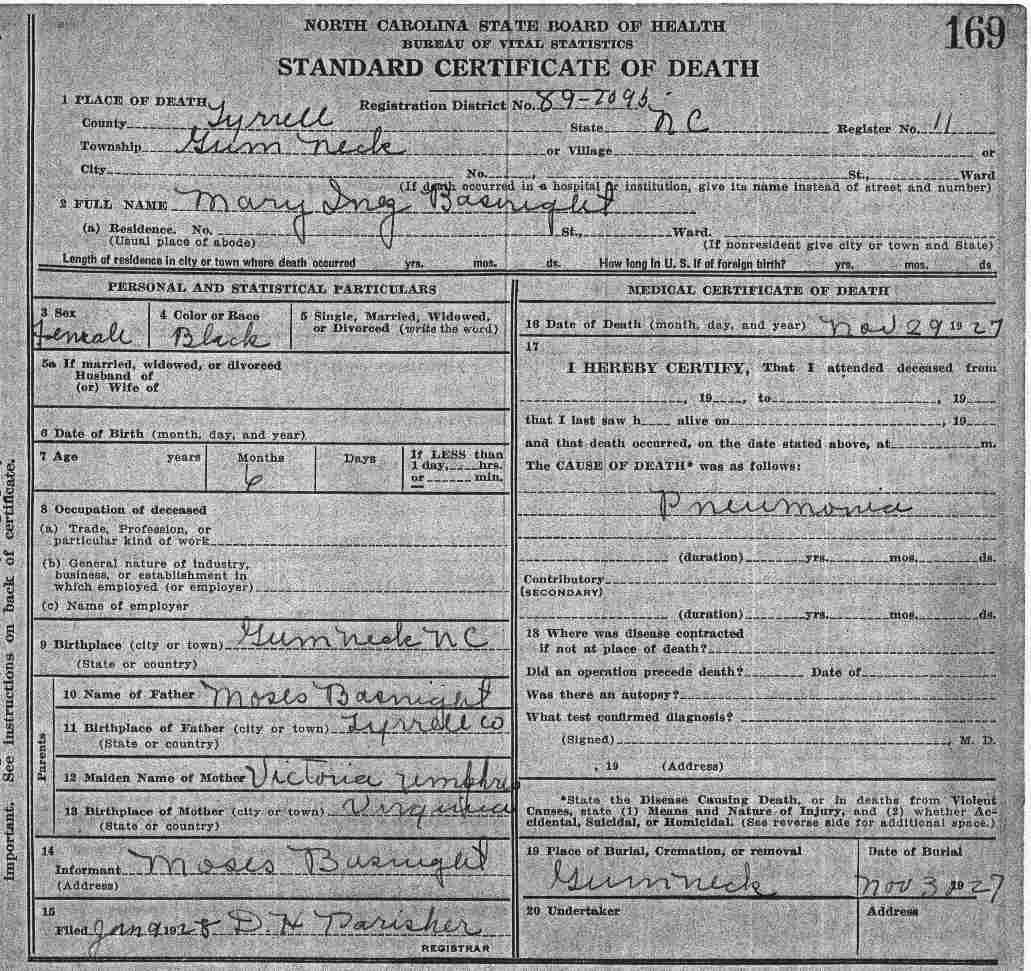 NORTH CAROLINA STATE BOARD OF HEALTH
169
BUREAU OF VITAL STATISTICS
STANDARD CERTIFICATE OF DEATH
1 PLACE OF DEATH Registration District No. 89-7095
County Tyrrell State NC Register No. 11
Township Gum Neck or Village or
City No. , St., Ward
(If death occurred in a hospital or institution, give its name instead of street and number)
2 FULL NAME Mary Inez Basnight
(a) Residence. No. St., Ward.
(Usual place of abode) (If nonresident give city or town and State)
Length of residence in city or town where death occurred yrs. mos. ds. How long in U. S. if of foreign birth? yrs. mos. ds
PERSONAL AND STATISTICAL PARTICULARS
3 Sex 4 Color or Race 5 Single, Married, Widowed,
or Divorced (write the word)
Female Black
5a If married, widowed, or divorced
Husband of
(or) Wife of
6 Date of Birth (month, day, and year)
7 Age years Months Days If LESS than
1 day, hrs.
6 or min.
8 Occupation of deceased
(a) Trade, Profession, or
particular kind of work
(b) General nature of industry,
business, or establishment in
which employed (or employer)
(c) Name of employer
9 Birthplace (city or town) Gum neck NC
(State or country)
Parents
10 Name of Father Moses Basnight
11 Birthplace of Father (city or town) Tyrrell co
(State or country)
12 Maiden Name of Mother Victoria
13 Birthplace of Mother (city or town) Virginia
(State or country)
14
Informant Moses Basnight
(Address)
15
Filed Jan 9 1928 D. H Parisher
REGISTRAR
MEDICAL CERTIFICATE OF DEATH
16 Date of Death (month, day, and year) Nov 29 1927
17
I HEREBY CERTIFY, That I attended deceased from
, 19 , to , 19
that I last saw h alive on , 19
and that death occurred, on the date stated above, at m.
The CAUSE OF DEATH* was as follows:
Pneumonia
(duration) yrs. mos. ds.
Contributory
(SECONDARY)
(duration) yrs. mos. ds.
18 Where was disease contracted
if not at place of death?
Did an operation precede death? Date of
Was there an autopsy?
What test confirmed diagnosis?
(Signed) , M. D.
, 19 (Address)
*State the Disease Causing Death, or in deaths from Violent
Causes, state (1) Means and Nature of Injury, and (2) whether Ac-
cidental, Suicidal, or Homicidal. (See reverse side for additional space.)
19 Place of Burial, Cremation, or removal Date of Burial
Gum neck Nov 30 1927
20 Undertaker Address
Important. See instructions on back of certificate.